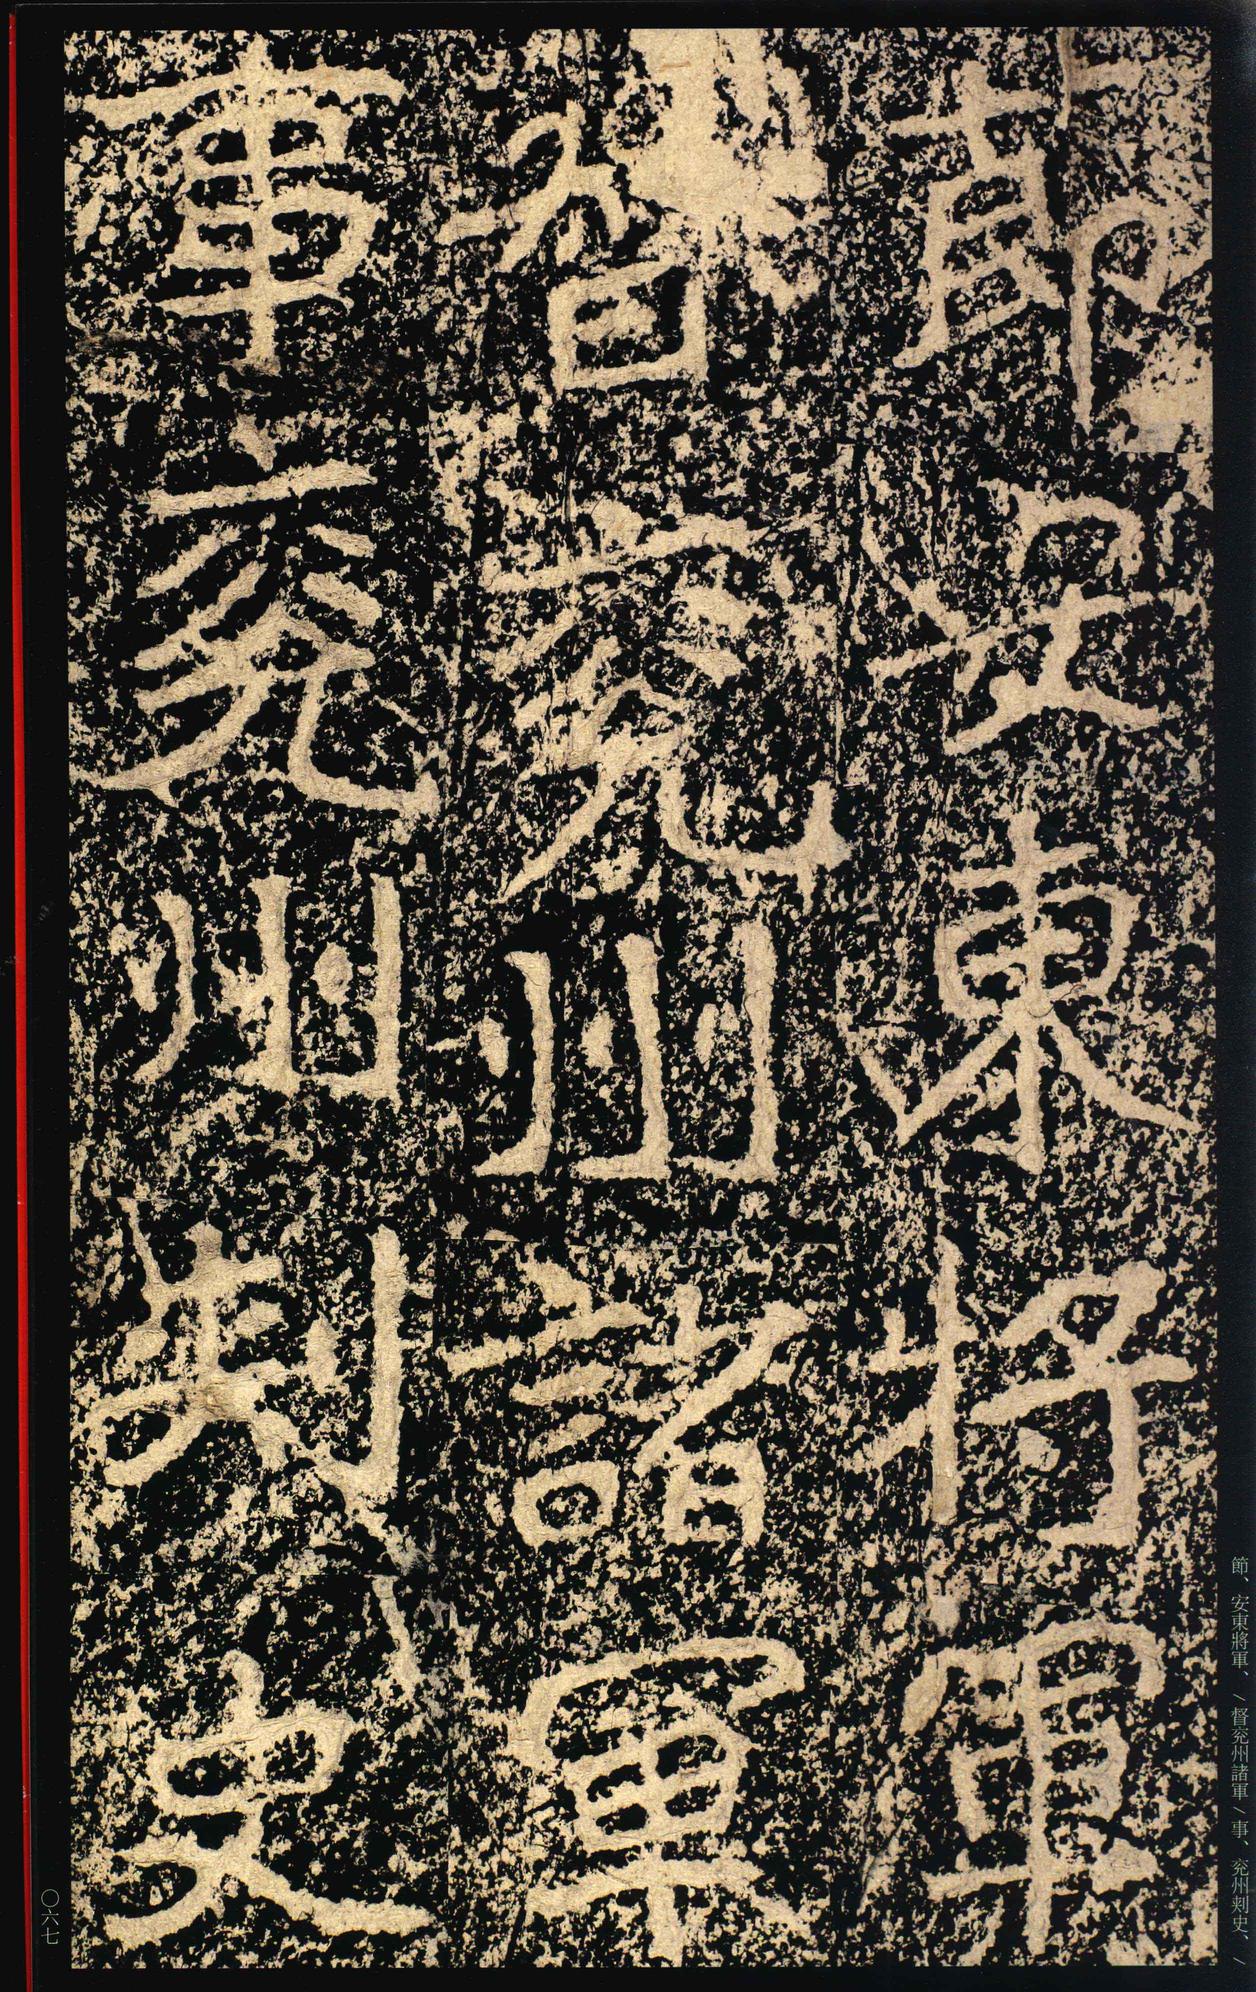 節安東將軍
督兖州諸軍
事兖州刾史
節、安東將軍、/督兖州諸軍/事、兖州刾史、/
〇六七